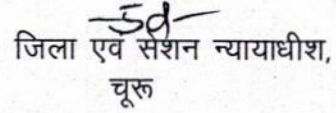 -Sd-
जिला एवं सेशन न्यायाधीश,
चूरू